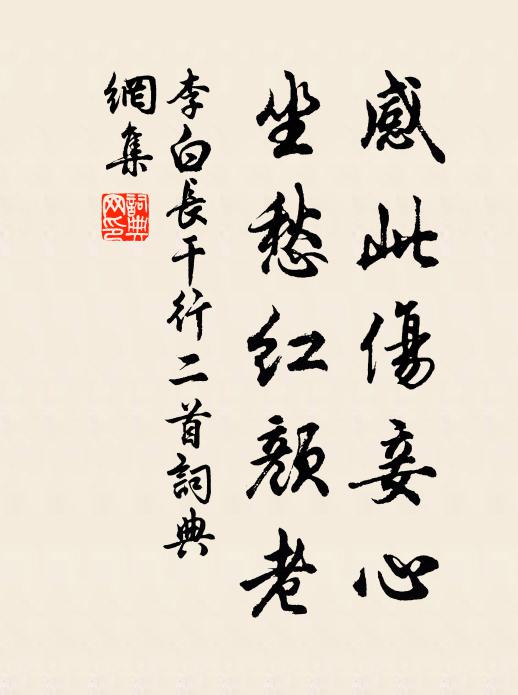 感此傷妾心
坐愁红顏老
李白長干行二首詞典
網集
詞典网印